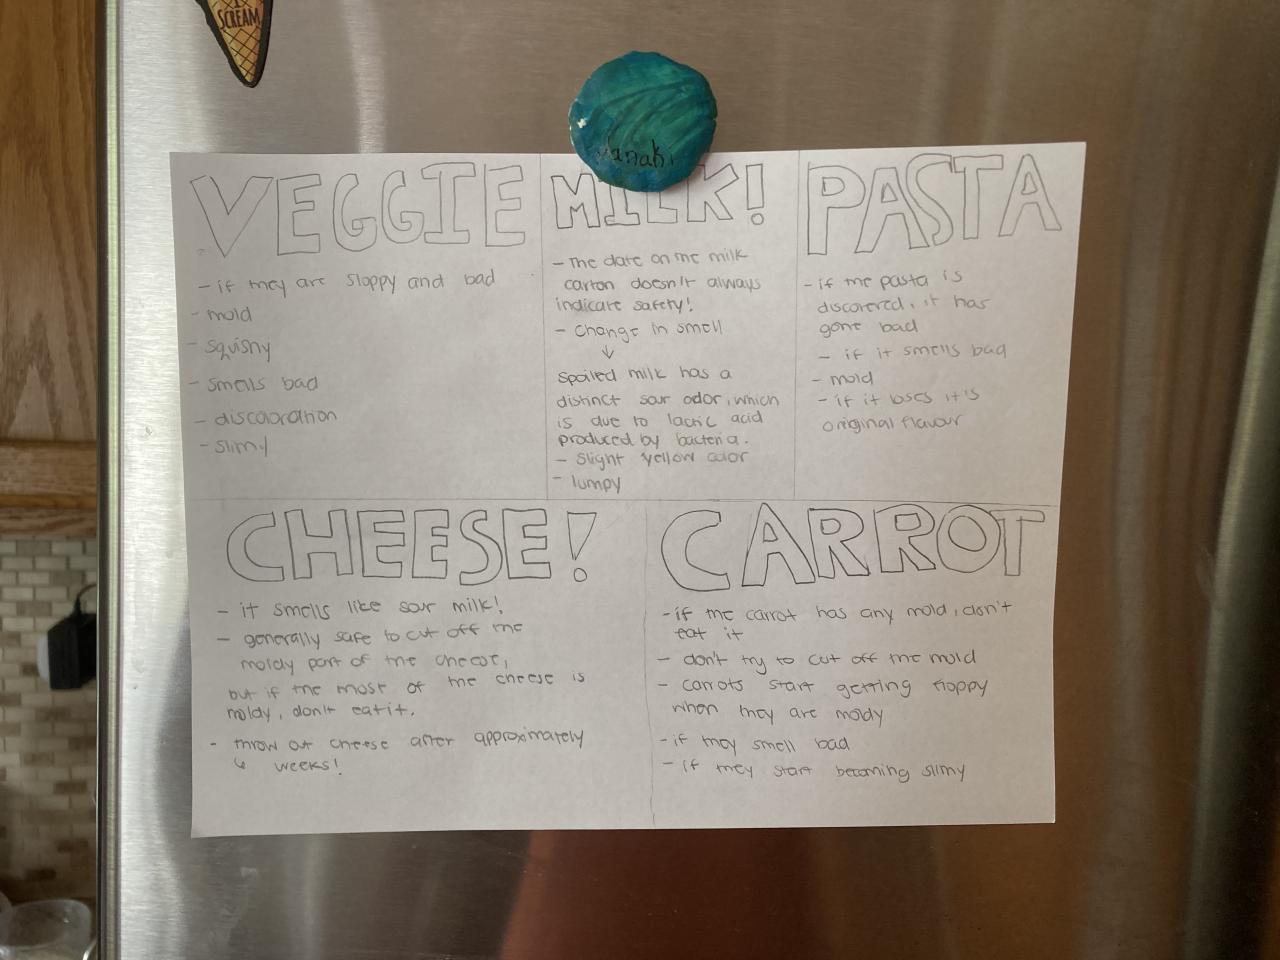 SCREAM
VEGGIE
- if they are sloppy and bad
- mold
- squishy
- smells bad
- discooration
- slimy
MILK!
- The date on the milk
carton doesn't always
indicate safety!
- change in smell
↓
spoiled milk has a
distinct sour odor, which
is due to lactic acid
produced by bacteria.
- slight yellow color
- lumpy
PASTA
- if the pasta is
discovered, it has
gone bad
- if it smells bad
- mold
- if it loses it's
original flavour
CHEESE!
- it smells like sour milk!
- generally safe to cut off the
moldy part of the cheese,
but if the most of the cheese is
moldy, don't eat it.
- throw out cheese after approximately
weeks!
CARROT
- if the carrot has any mold, don't
eat it
- don't try to cut off the mold
- carrots start getting floppy
when they are moldy
- if they smell bad
- if they start becoming slimy